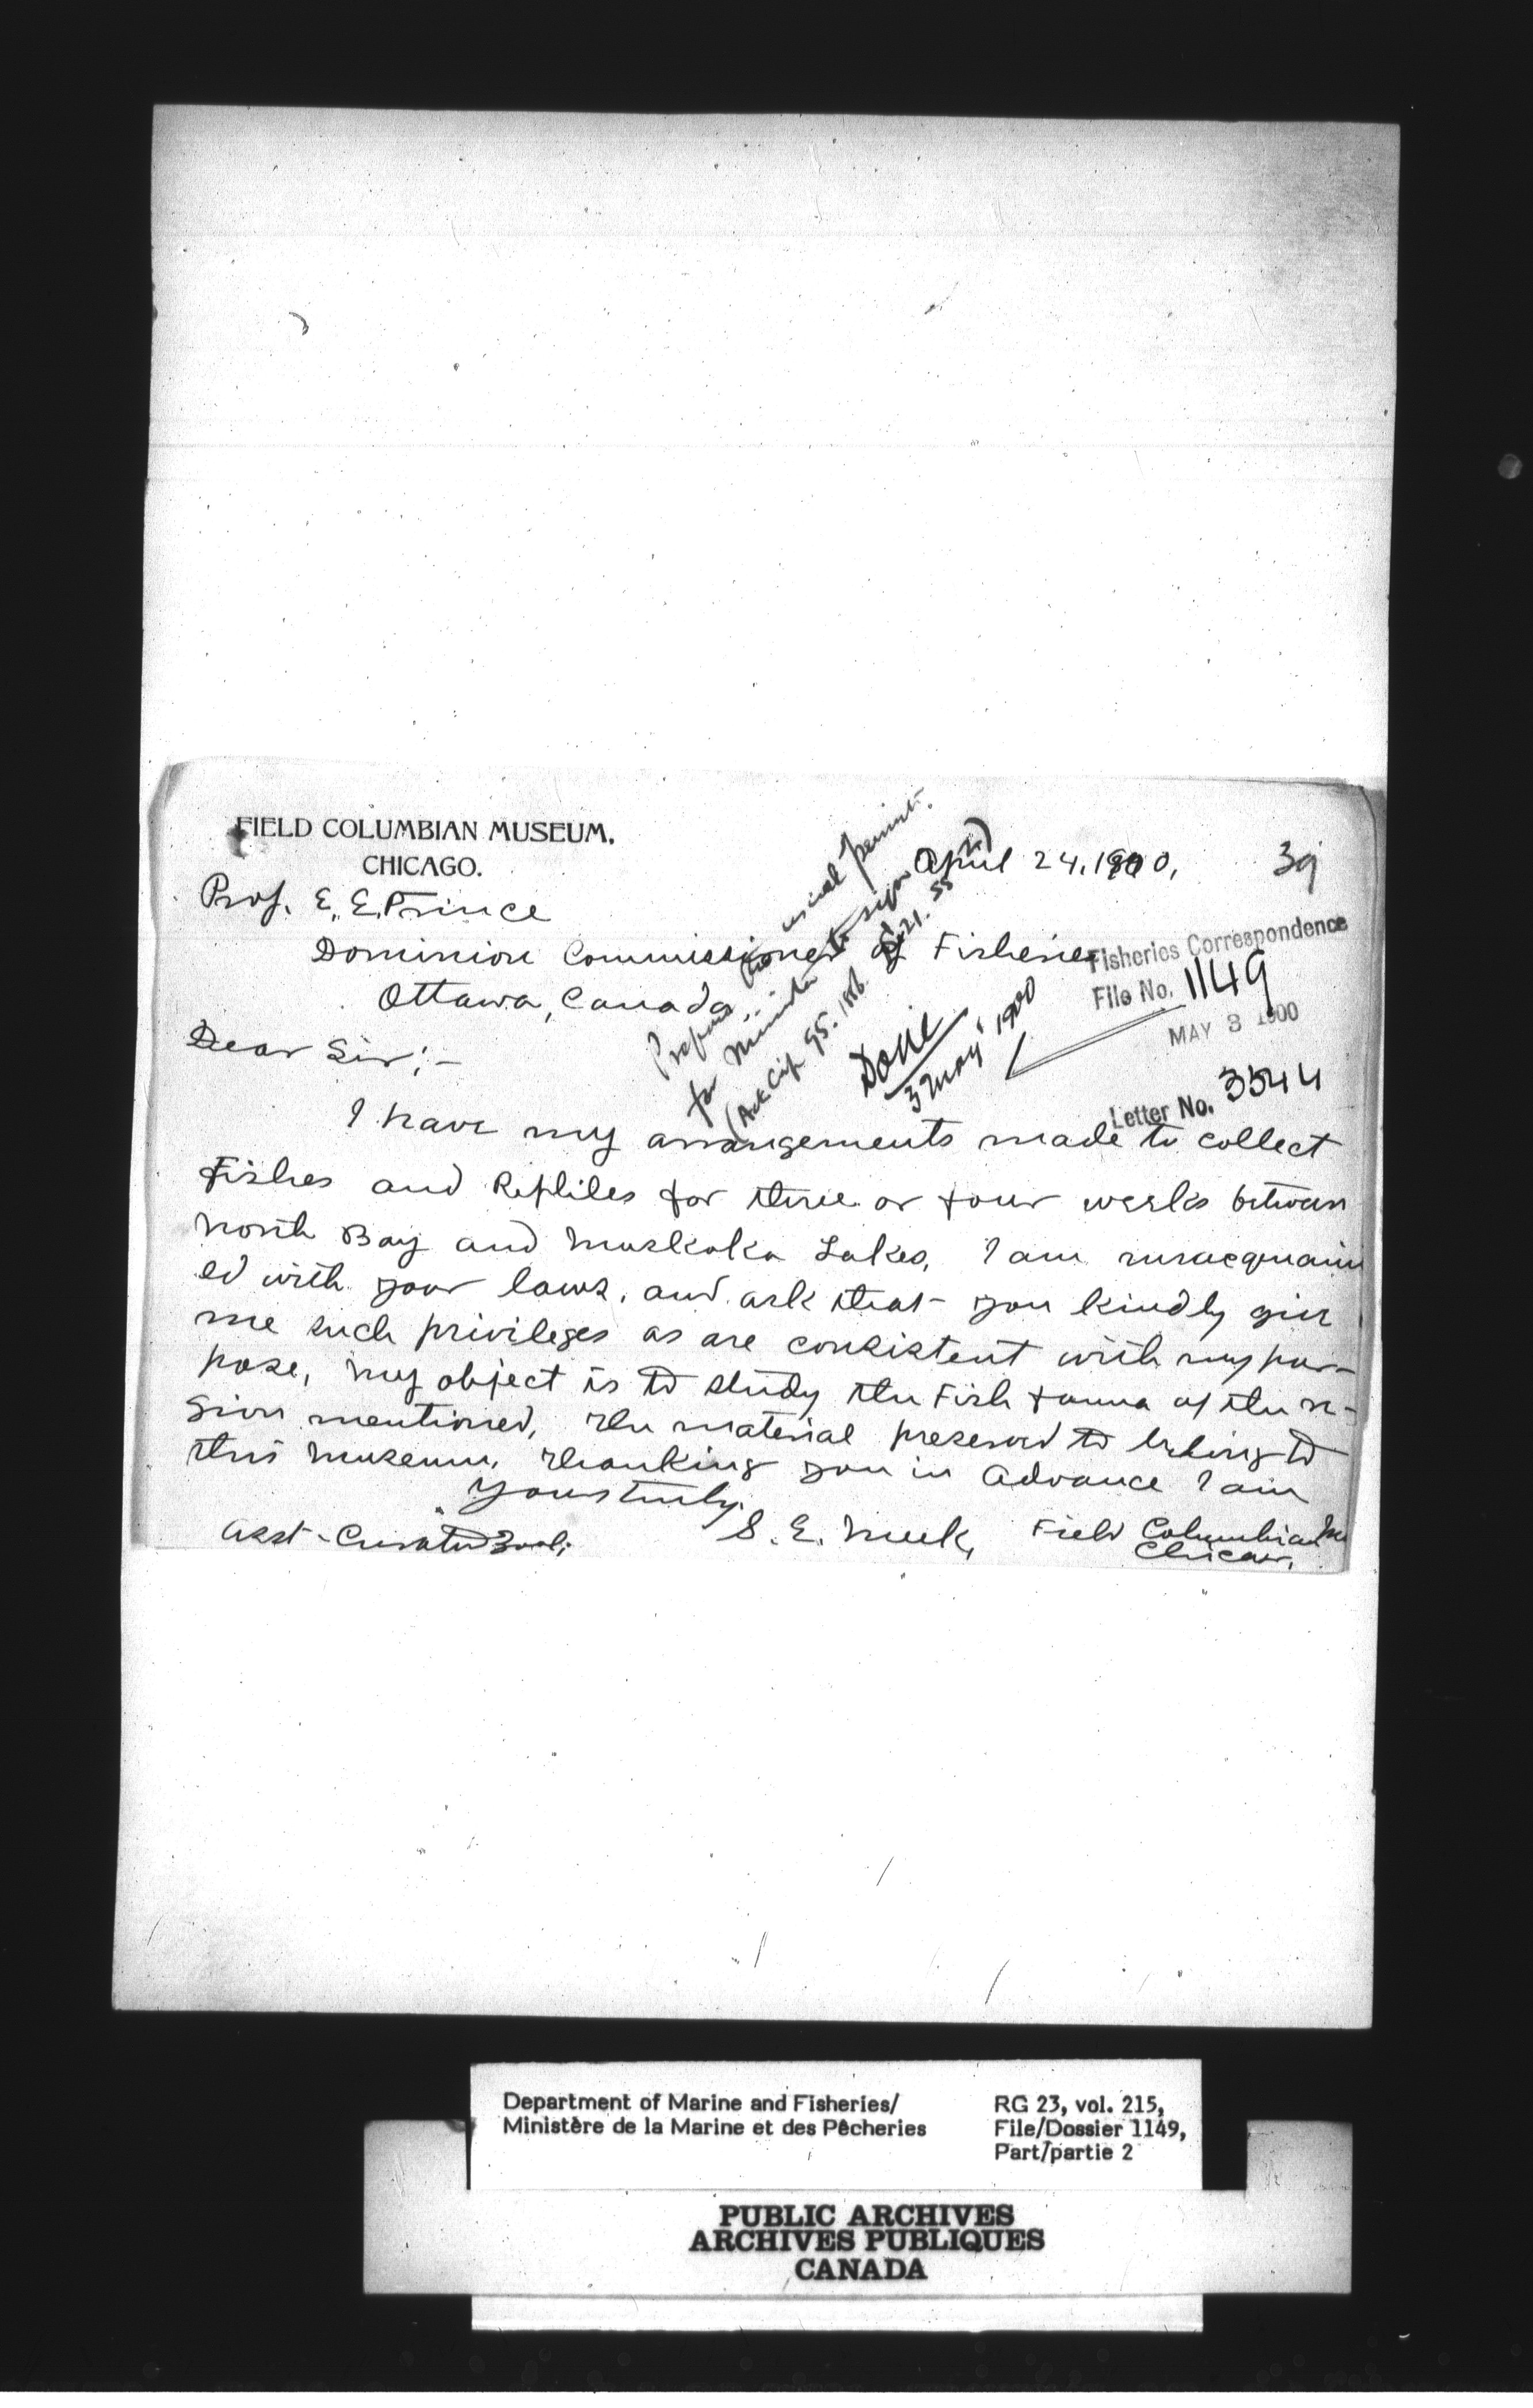 FIELD COLUMBIAN MUSEUM.
CHICAGO.
April 24, 1900,
39
Prof. E. E. Prince
Dominion Commissioner of Fisheries
Ottawa, Canada,
Dear Sir;-
Prepare the usual permit
for Minister to sign
(Act. Cap 95. 1886. S. 21. SS
Done
3 May 1900
Fisheries Correspondence
File No. 1149
MAY 3 1900
Letter No. 3544
I have my arrangements made to collect
Fishes and Reptiles for three or four weeks between
North Bay and Muskoka Lakes, I am unacquaint
ed with your laws, and ask that you kindly give
me such privileges as are consistent with my pur-
pose, My object is to study the Fish fauna of the re-
gion mentioned, The material preserved to belong to
this museum. Thanking you in Advance I am
Yours truly.
S. E. Meek,
Asst. Curator Zool;
Field Columbian Mu
Chicago.
Department of Marine and Fisheries/
Ministère de la Marine et des Pêcheries
RG 23, vol. 215,
File/Dossier 1149,
Part/partie 2
PUBLIC ARCHIVES
ARCHIVES PUBLIQUES
CANADA